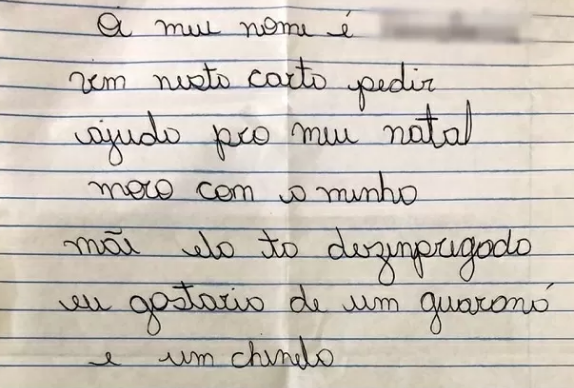 O meu nome é
vem nesta carta pedir
ajuda pro meu natal
moro com a minha
mãi ela ta dezinpregada
eu gostaria de um guaraná
e um chinelo